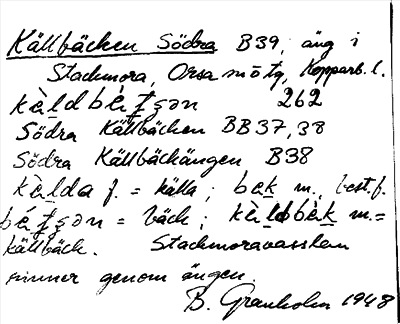 Källbäcken Södra B39, äng i
Stackmora, Orsa Mötg, Kopparb. l.
262
Södra Källbäcken BB37,38
Södra Källbäckängen B38
kèlda f. = källa; bek m., best.f.
= bäck; kèldbèk m. =
källbäck. Stackmoravasslan
rinner genom ängen.
B. Granholm 1948